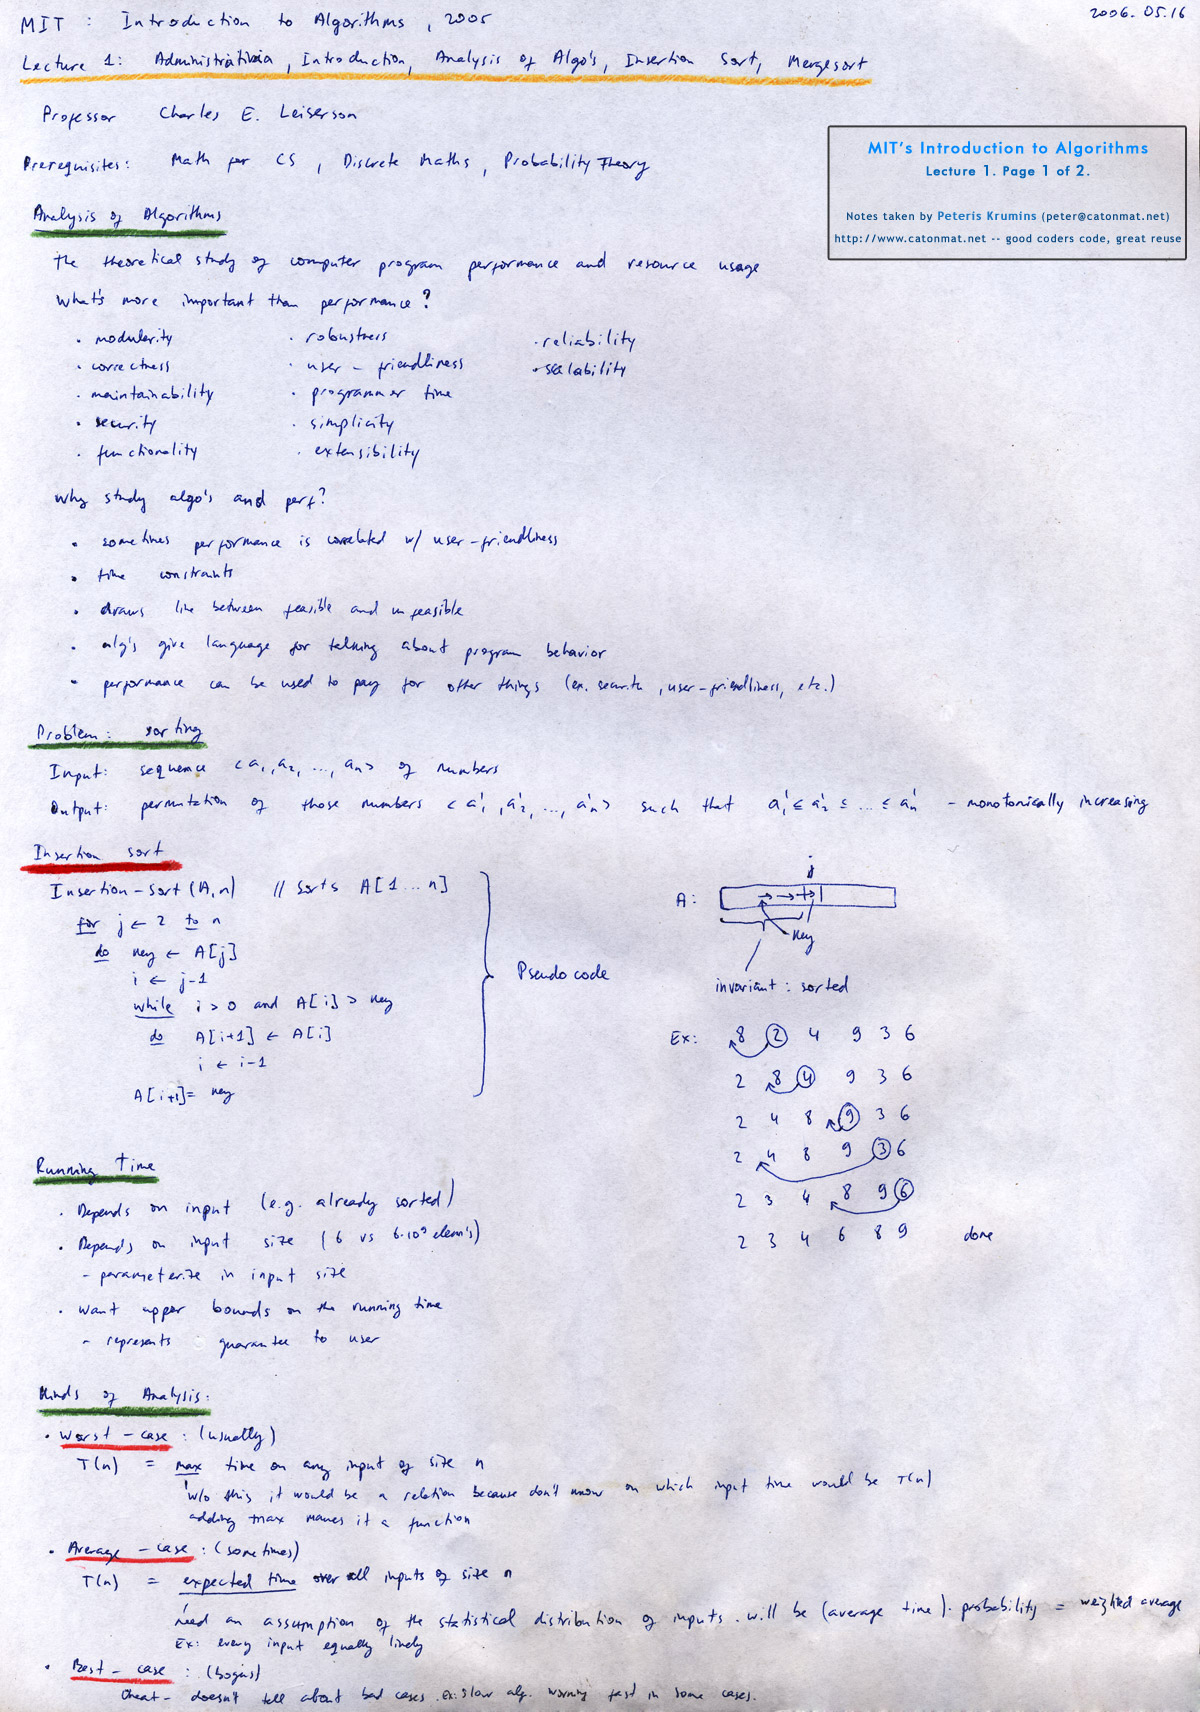 MIT : Introduction to Algorithms, 2005
2006.05.16
Lecture 1: Administrativia, Introduction, Analysis of Algo's, Insertion Sort, Mergesort
Professor Charles E. Leiserson
Prerequisites: Math for CS, Discrete Maths, Probability Theory
MIT's Introduction to Algorithms
Lecture 1. Page 1 of 2.
Notes taken by Peteris Krumins (peter@catonmat.net)
http://www.catonmat.net -- good coders code, great reuse
Analysis of Algorithms
The theoretical study of computer program performance and resource usage
What's more important than performance?
· modularity · robustness · reliability
· correctness · user-friendliness · scalability
· maintainability · programmer time
· security · simplicity
· functionality · extensibility
Why study algo's and perf?
· sometimes performance is correlated w/ user-friendliness
· time constraints
· draws line between feasible and unfeasible
· alg's give language for talking about program behavior
· performance can be used to pay for other things (ex. security, user-friendliness, etc.)
Problem: sorting
Input: sequence <a₁, a₂, ..., aₙ> of numbers
Output: permutation of those numbers <a'₁, a'₂, ..., a'ₙ> such that a'₁ ≤ a'₂ ≤ ... ≤ a'ₙ - monotonically increasing
Insertion sort
Insertion-Sort (A,n) // sorts A[1...n]
for j ← 2 to n
do key ← A[j]
i ← j-1
while i > 0 and A[i] > key
do A[i+1] ← A[i]
i ← i-1
A[i+1] = key
Pseudocode
j
A:
key
invariant: sorted
Ex: 8 2 4 9 3 6
2 8 4 9 3 6
2 4 8 9 3 6
2 4 8 9 3 6
2 3 4 8 9 6
2 3 4 6 8 9 done
Running time
· Depends on input (e.g. already sorted)
· Depends on input size (6 vs 6·10⁹ elem's)
- parameterize in input size
· want upper bounds on the running time
- represents guarantee to user
Kinds of Analysis:
· Worst-case : (usually)
T(n) = max time on any input of size n
w/o this it would be a relation because don't know on which input time would be T(n)
adding max makes it a function
· Average-case : (sometimes)
T(n) = expected time over all inputs of size n
need an assumption of the statistical distribution of inputs. will be (average time) · probability = weighted average
Ex: every input equally likely
· Best-case : (bogus)
Cheat - doesn't tell about bad cases. Ex: slow alg. working fast in some cases.